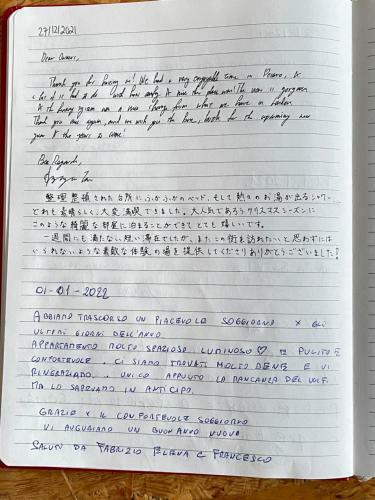 27/12/2021
Dear Owners,
Thank you for having us! We had a very enjoyable time in Pesaro, &
a lot of it had to do with how lovely & nice this place was! The view is gorgeous
& the heating system was a nice change from what we have in London.
Thank you once again, and we wish you the best, both for the upcoming new
year & the years to come!
Best Regards,
整理整頓された台所にふかふかのベッド、そして熱々のお湯が出るシャワー、
どれも素晴らしく、大変満喫できました。大人気であろうクリスマスシーズンに
このような綺麗な部屋に泊まることができてとても嬉しいです。
一週間にも満たない短い滞在でしたが、またこの街を訪れたいと思わずには
いられないような素敵な体験の場を提供してくださりありがとうございました!
01-01-2022
ABBIAMO TRASCORSO UN PIACEVOLE SOGGIORNO X GLI
ULTIMI GIORNI DELL'ANNO
APPARTAMENTO MOLTO SPAZIOSO LUMINOSO ♡ E PULITO E
CONFORTEVOLE. CI SIAMO TROVATI MOLTO BENE E VI
RINGRAZIAMO. UNICO APPUNTO LA MANCANZA DEL WIFI
MA LO SAPEVAMO IN ANTICIPO.
GRAZIE X IL CONFORTEVOLE SOGGIORNO
VI AUGURIAMO UN BUON ANNO NUOVO
SALUTI DA FABRIZIO ELENA E FRANCESCO